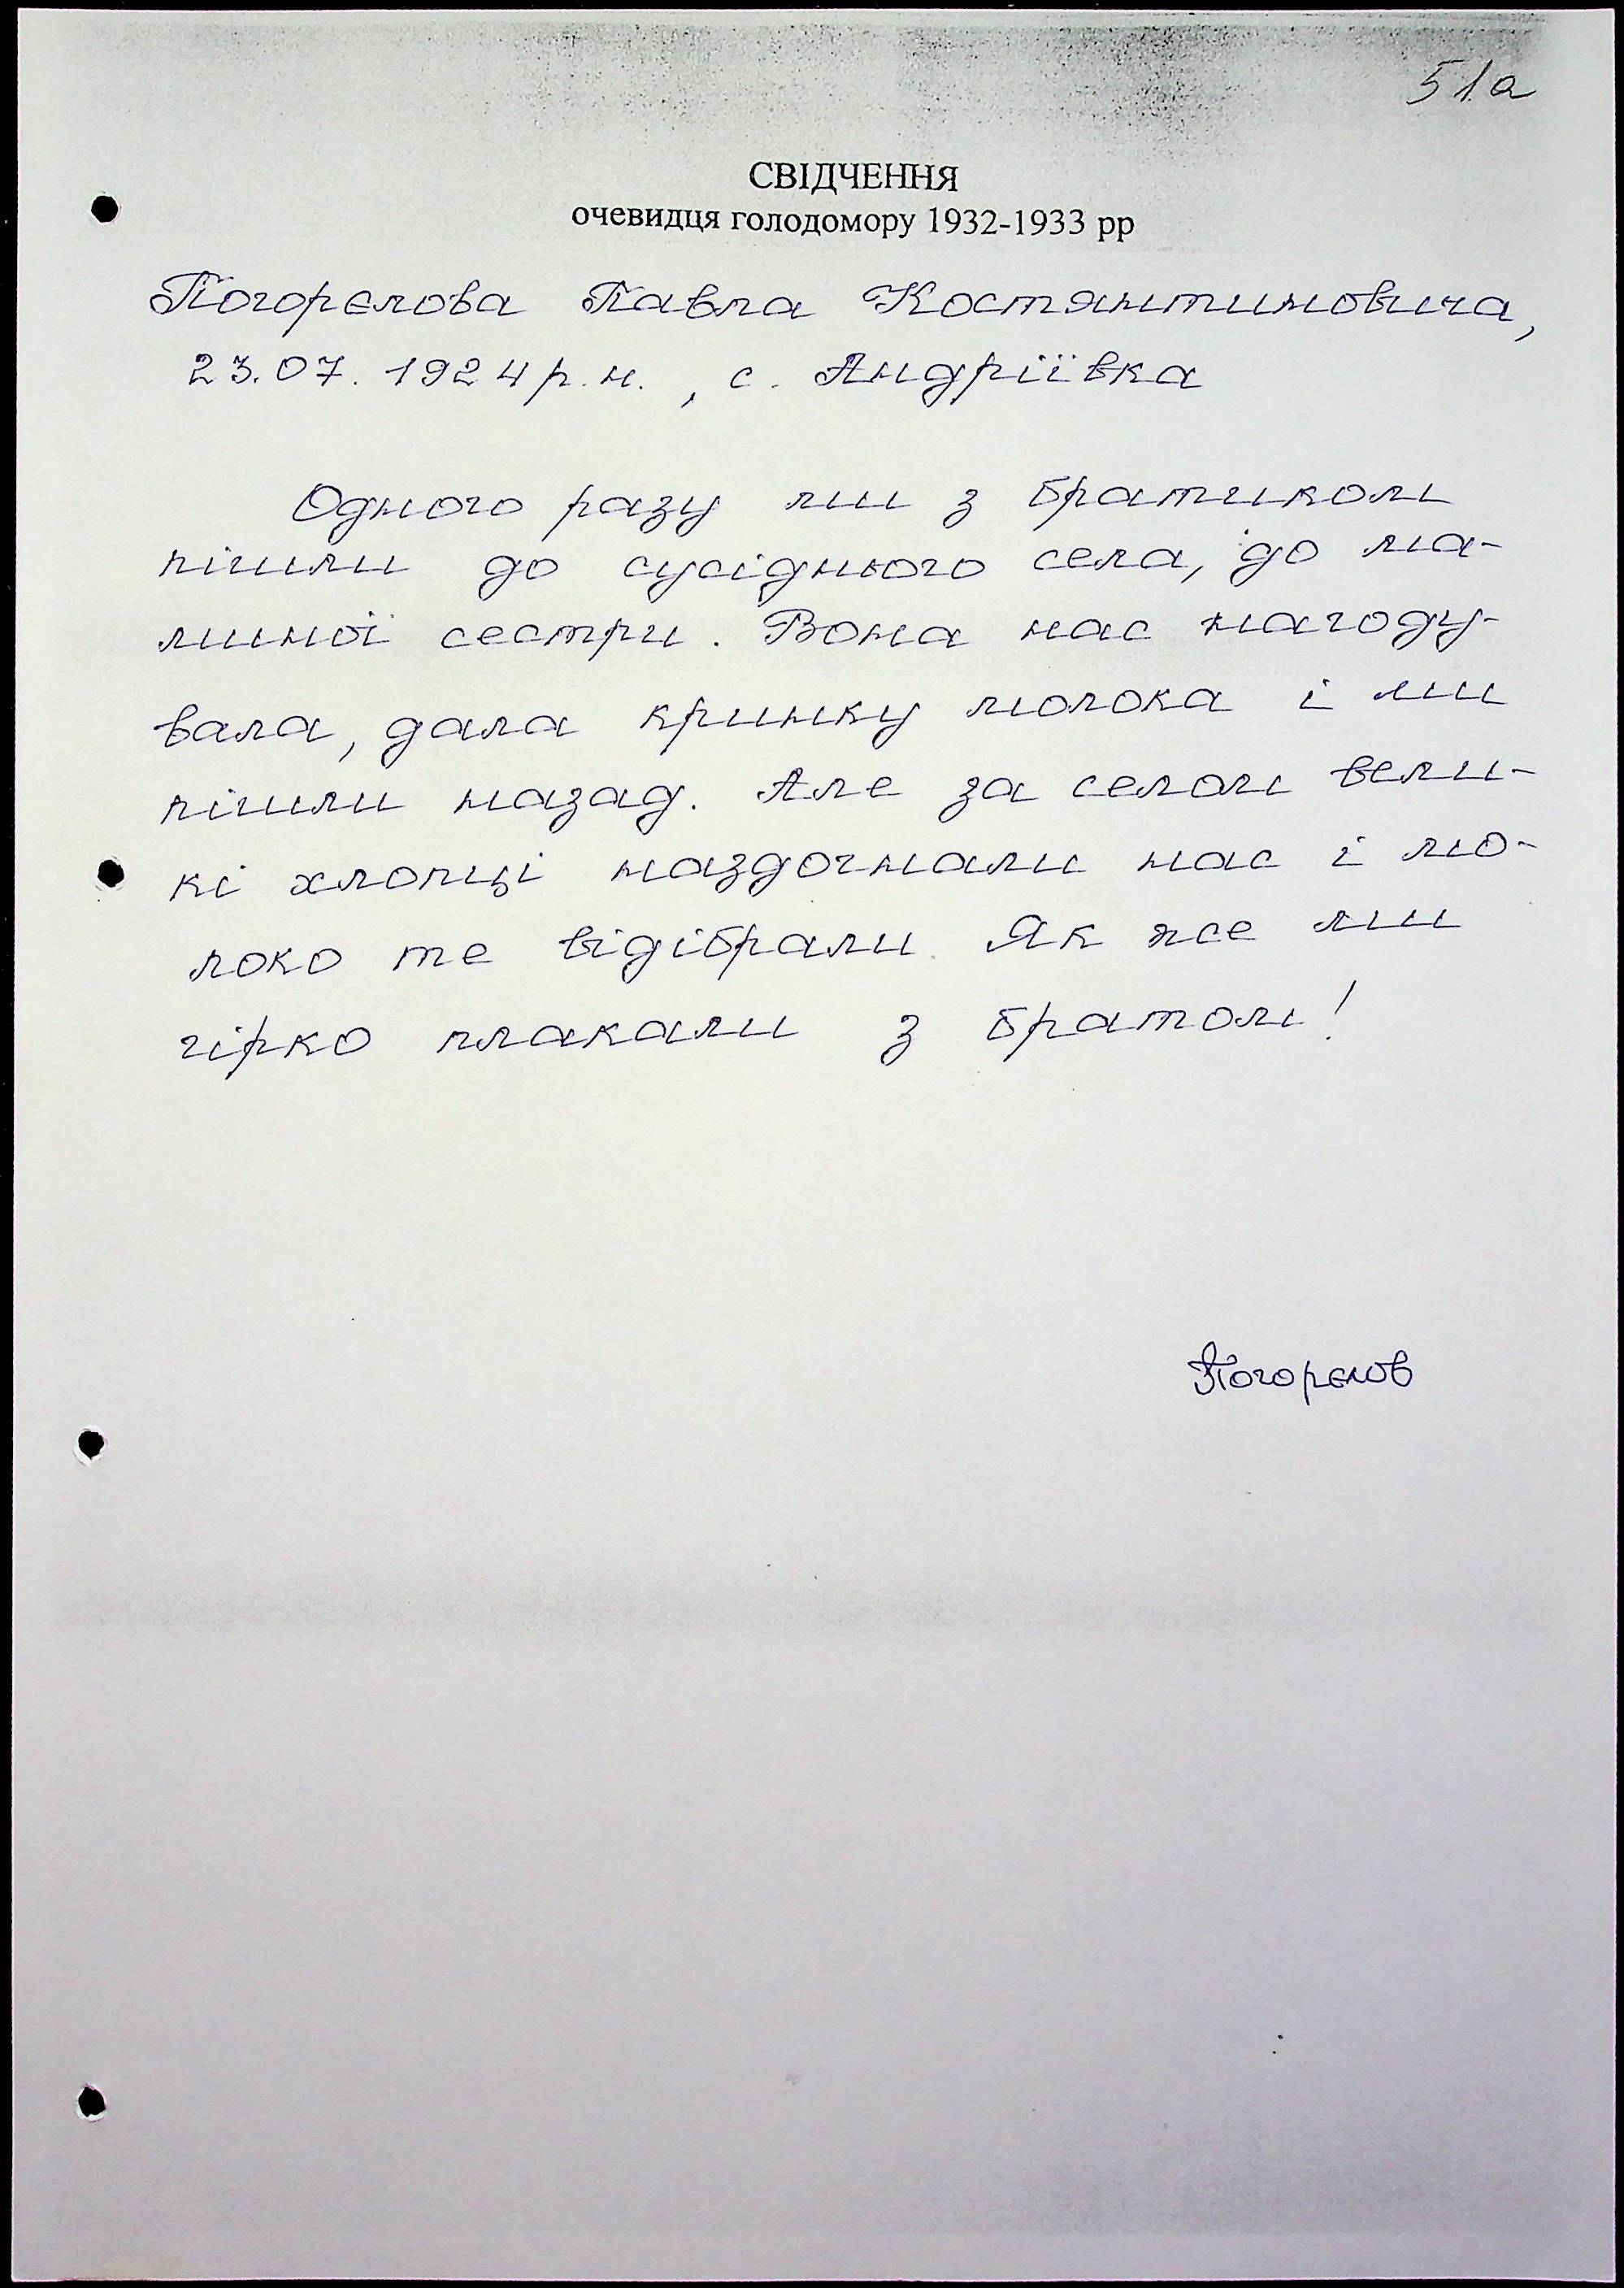 51а
СВІДЧЕННЯ
очевидця голодомору 1932-1933 рр
Погорєлова Павла Костянтиновича,
23.07.1924 р.н., с. Андріївка
Одного разу ми з братиком
пішли до сусіднього села, до ма-
миної сестри. Вона нас нагоду-
вала, дала кринку молока і ми
пішли назад. Але за селом вели-
кі хлопці наздогнали нас і мо-
локо те відібрали. Як же ми
гірко плакали з братом!
Погорєлов